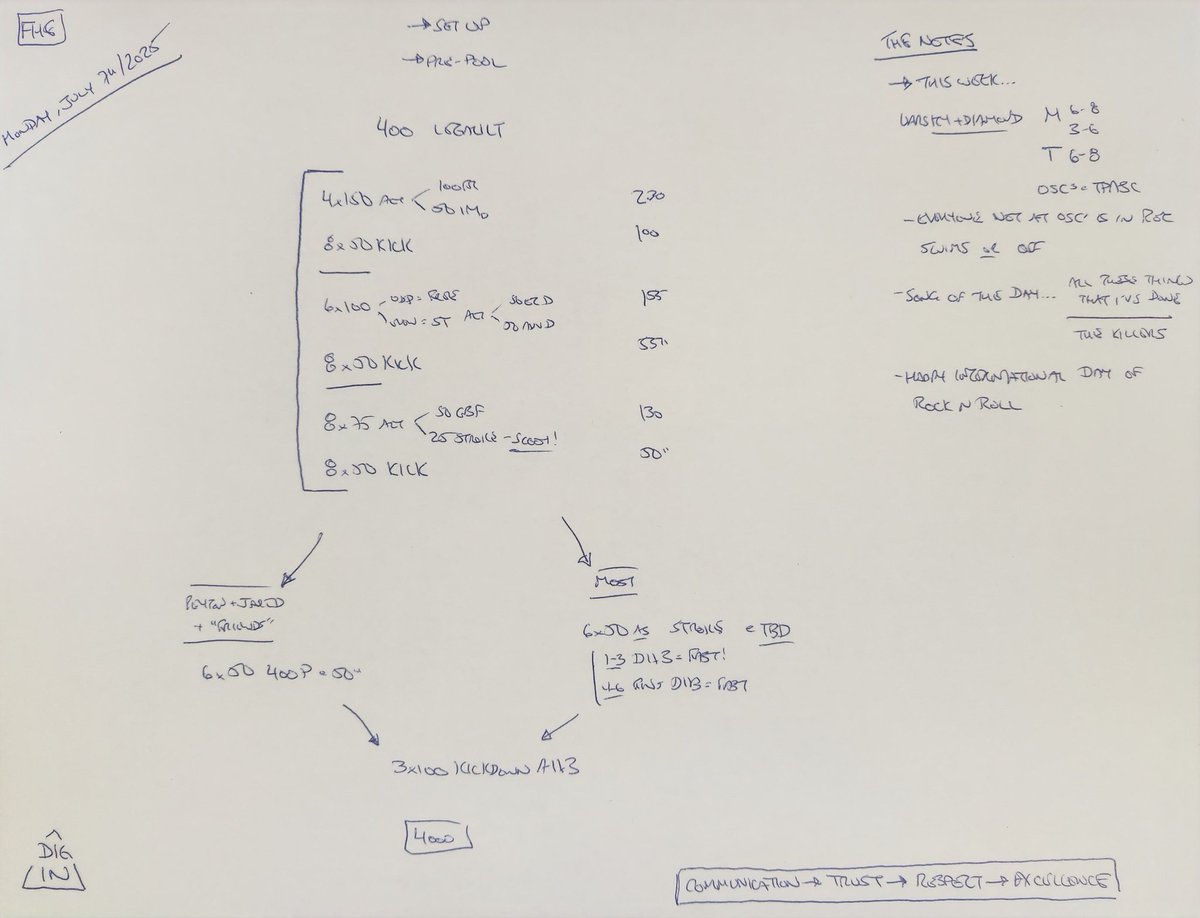 FHG
MONDAY, JULY 7TH/2025
→ SET UP
→ PRE-POOL
400 LEGAULT
4x150 ALT < 100BR 230
50 IMO
8x50 KICK 100
6x100 ALT < 155
8x50 KICK 55"
8x75 ALT < 50 GBF 130
25 STROKE - SCOOT!
8x50 KICK 50"
PEYTON + JARED
+ "FRIENDS"
6x50 400P @ 50"
MOST
6x50 AS STROKE @ TBD
1-3 D1→3 = FAST!
4-6 D1→3 = FAST
3x100 KICKDOWN A1→3
4000
DIG
IN
THE NOTES
→ THIS WEEK...
VARSITY + DIAMOND M 6-8
3-6
T 6-8
OSC'S = TPASC
- EVERYONE NOT AT OSC'S IS IN ROC
SWIMS OR OFF
- SONG OF THE DAY... ALL THESE THINGS
THAT I'VE DONE
THE KILLERS
- HAPPY INTERNATIONAL DAY OF
ROCK N ROLL
COMMUNICATION → TRUST → RESPECT → EXCELLENCE